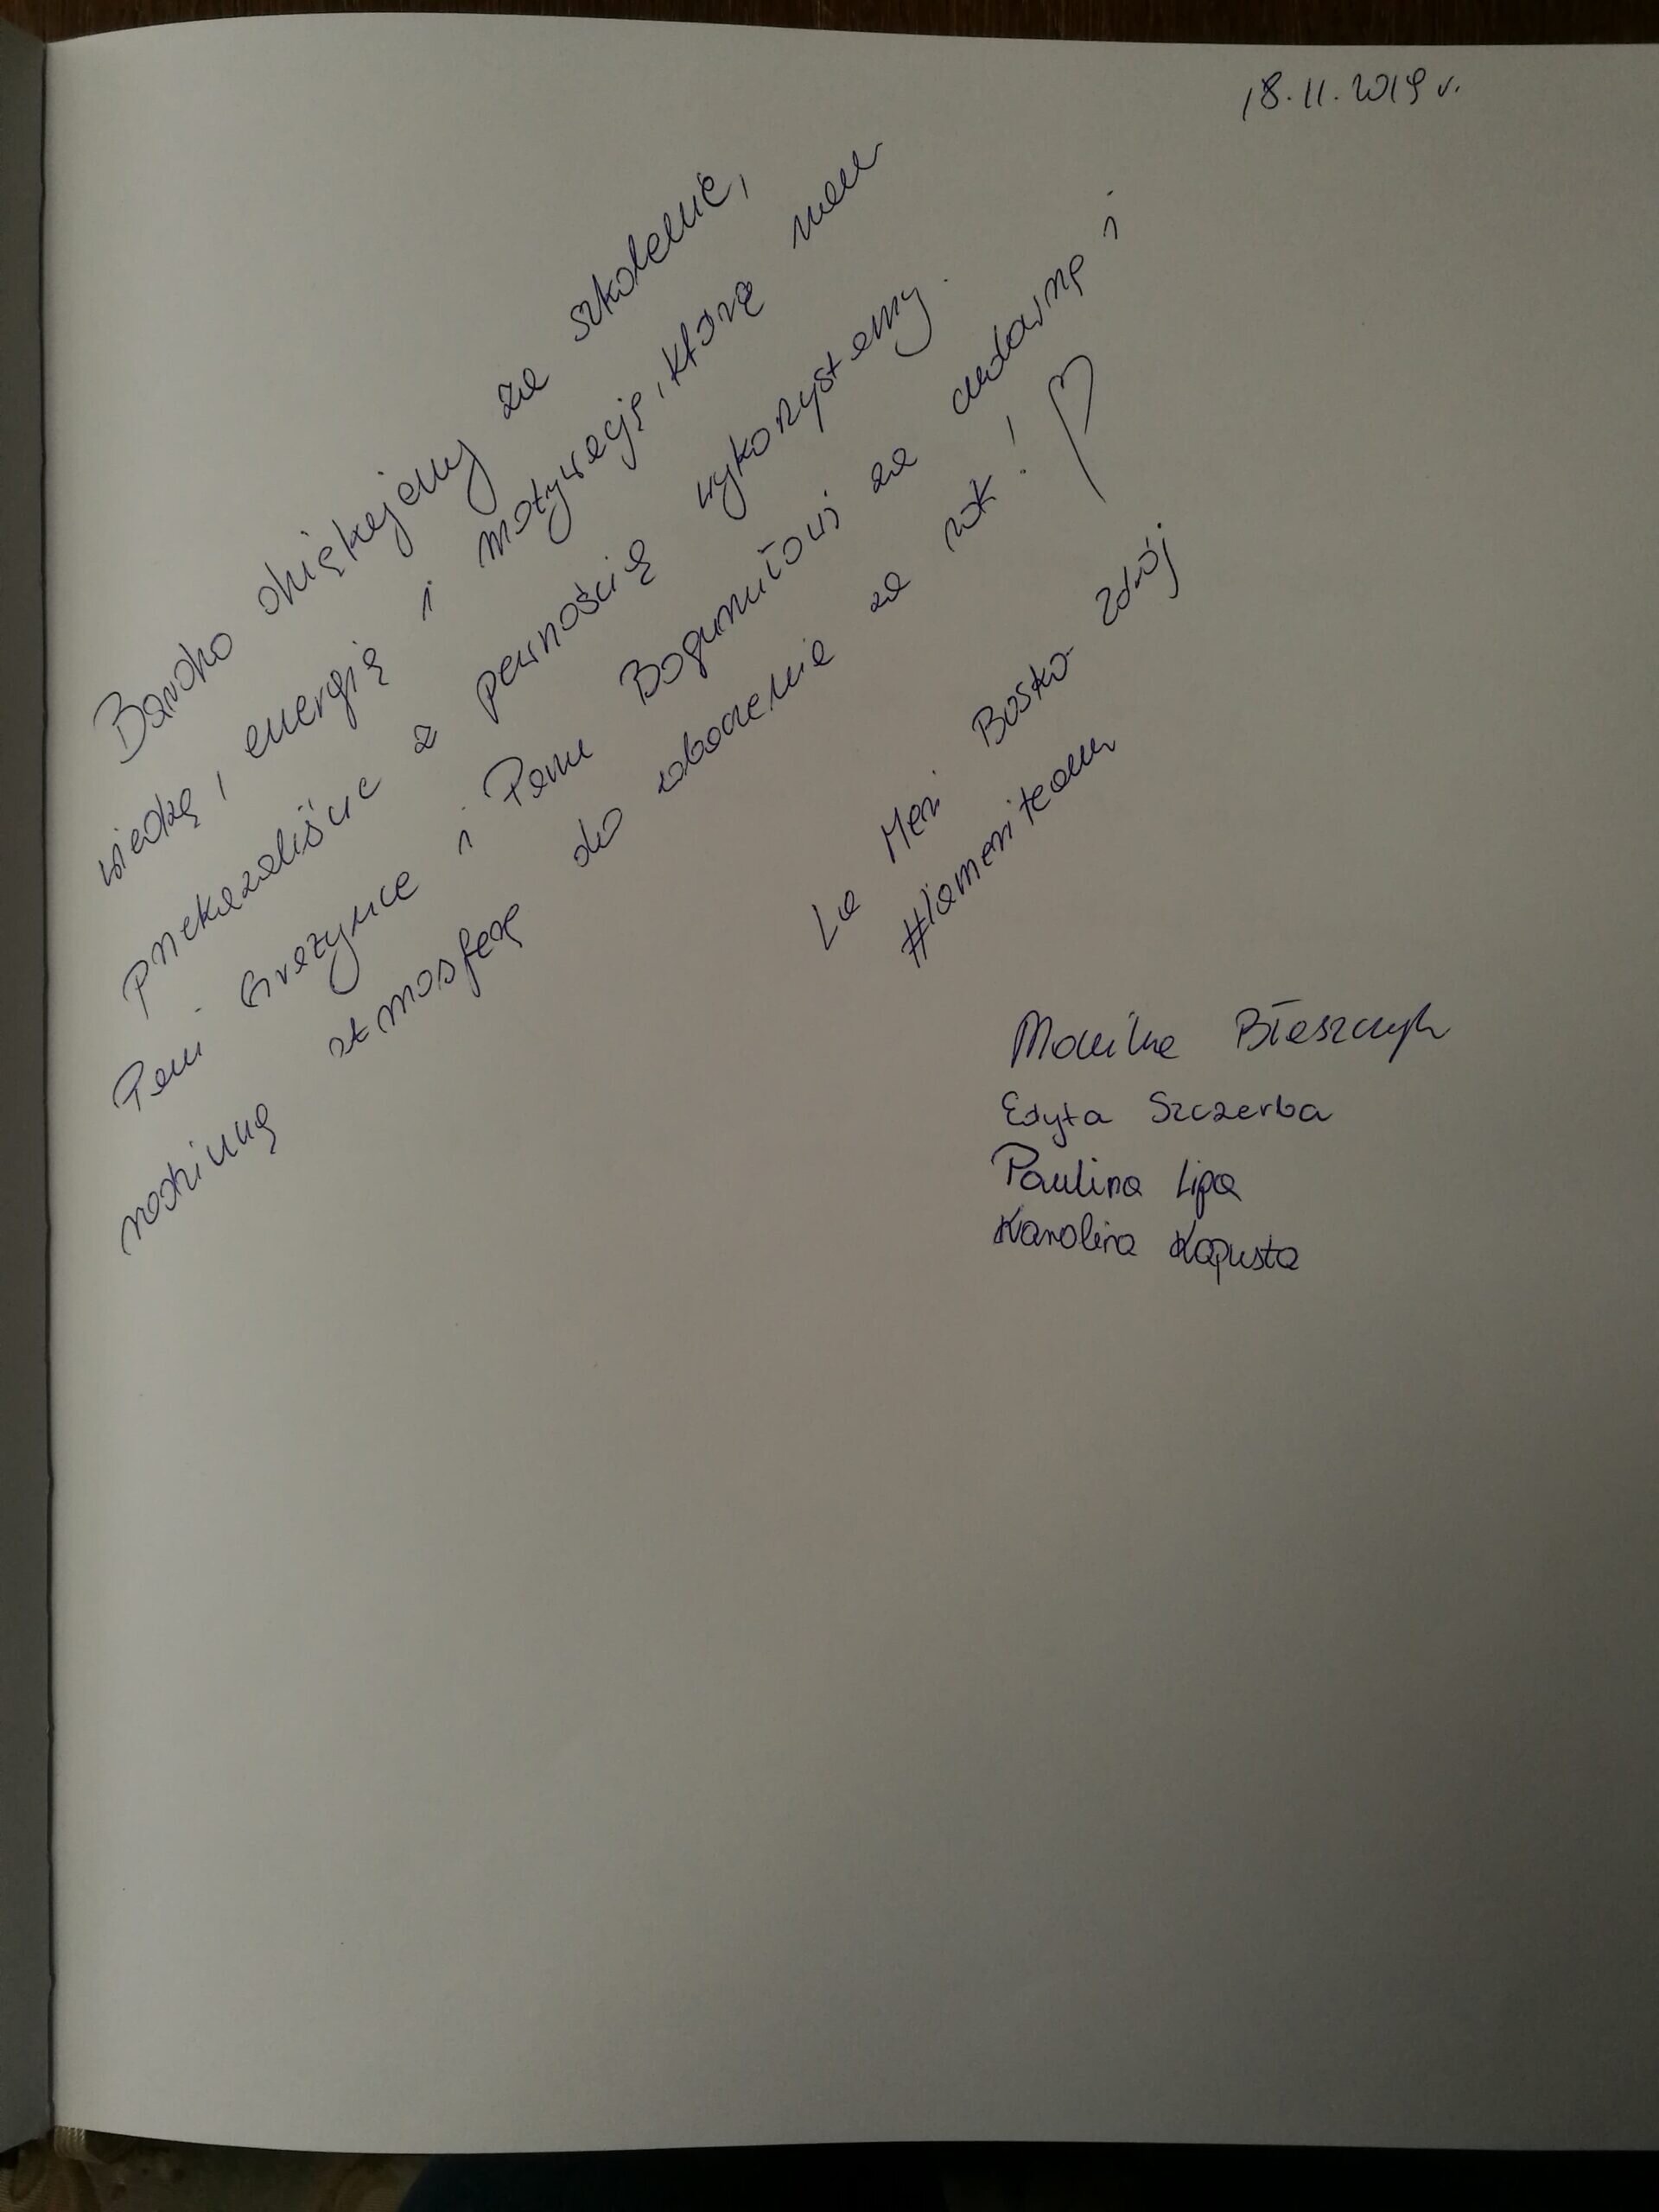 18.11.2019 r.
Bardzo dziękujemy za szkolenie,
wiedzę, energię i motywację, którą nam
przekazaliście z pewnością wykorzystamy.
Pani Grażynce i Panu Bogumiłowi za cudowną i
rodzinną atmosferę do zobaczenia za rok!
La Meri Busko-Zdrój
#lameriteam
Monika Błaszczyk
Edyta Szczerba
Paulina Lipa
Karolina Kapusta